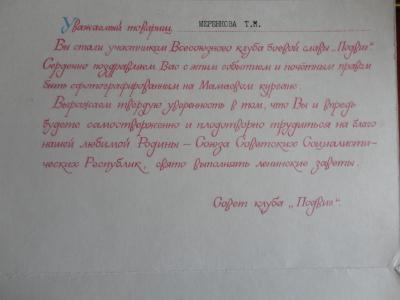 Уважаемый товарищ МЕРЕНКОВА Т.М.
Вы стали участником Всесоюзного клуба боевой славы „Подвиг“
Сердечно поздравляем Вас с этим событием и почётным правом
быть сфотографированным на Мамаевом кургане.
Выражаем твердую уверенность в том, что Вы и впредь
будете самоотверженно и плодотворно трудиться на благо
нашей любимой Родины – Союза Советских Социалисти-
ческих Республик, свято выполнять ленинские заветы.
Совет клуба „Подвиг“.